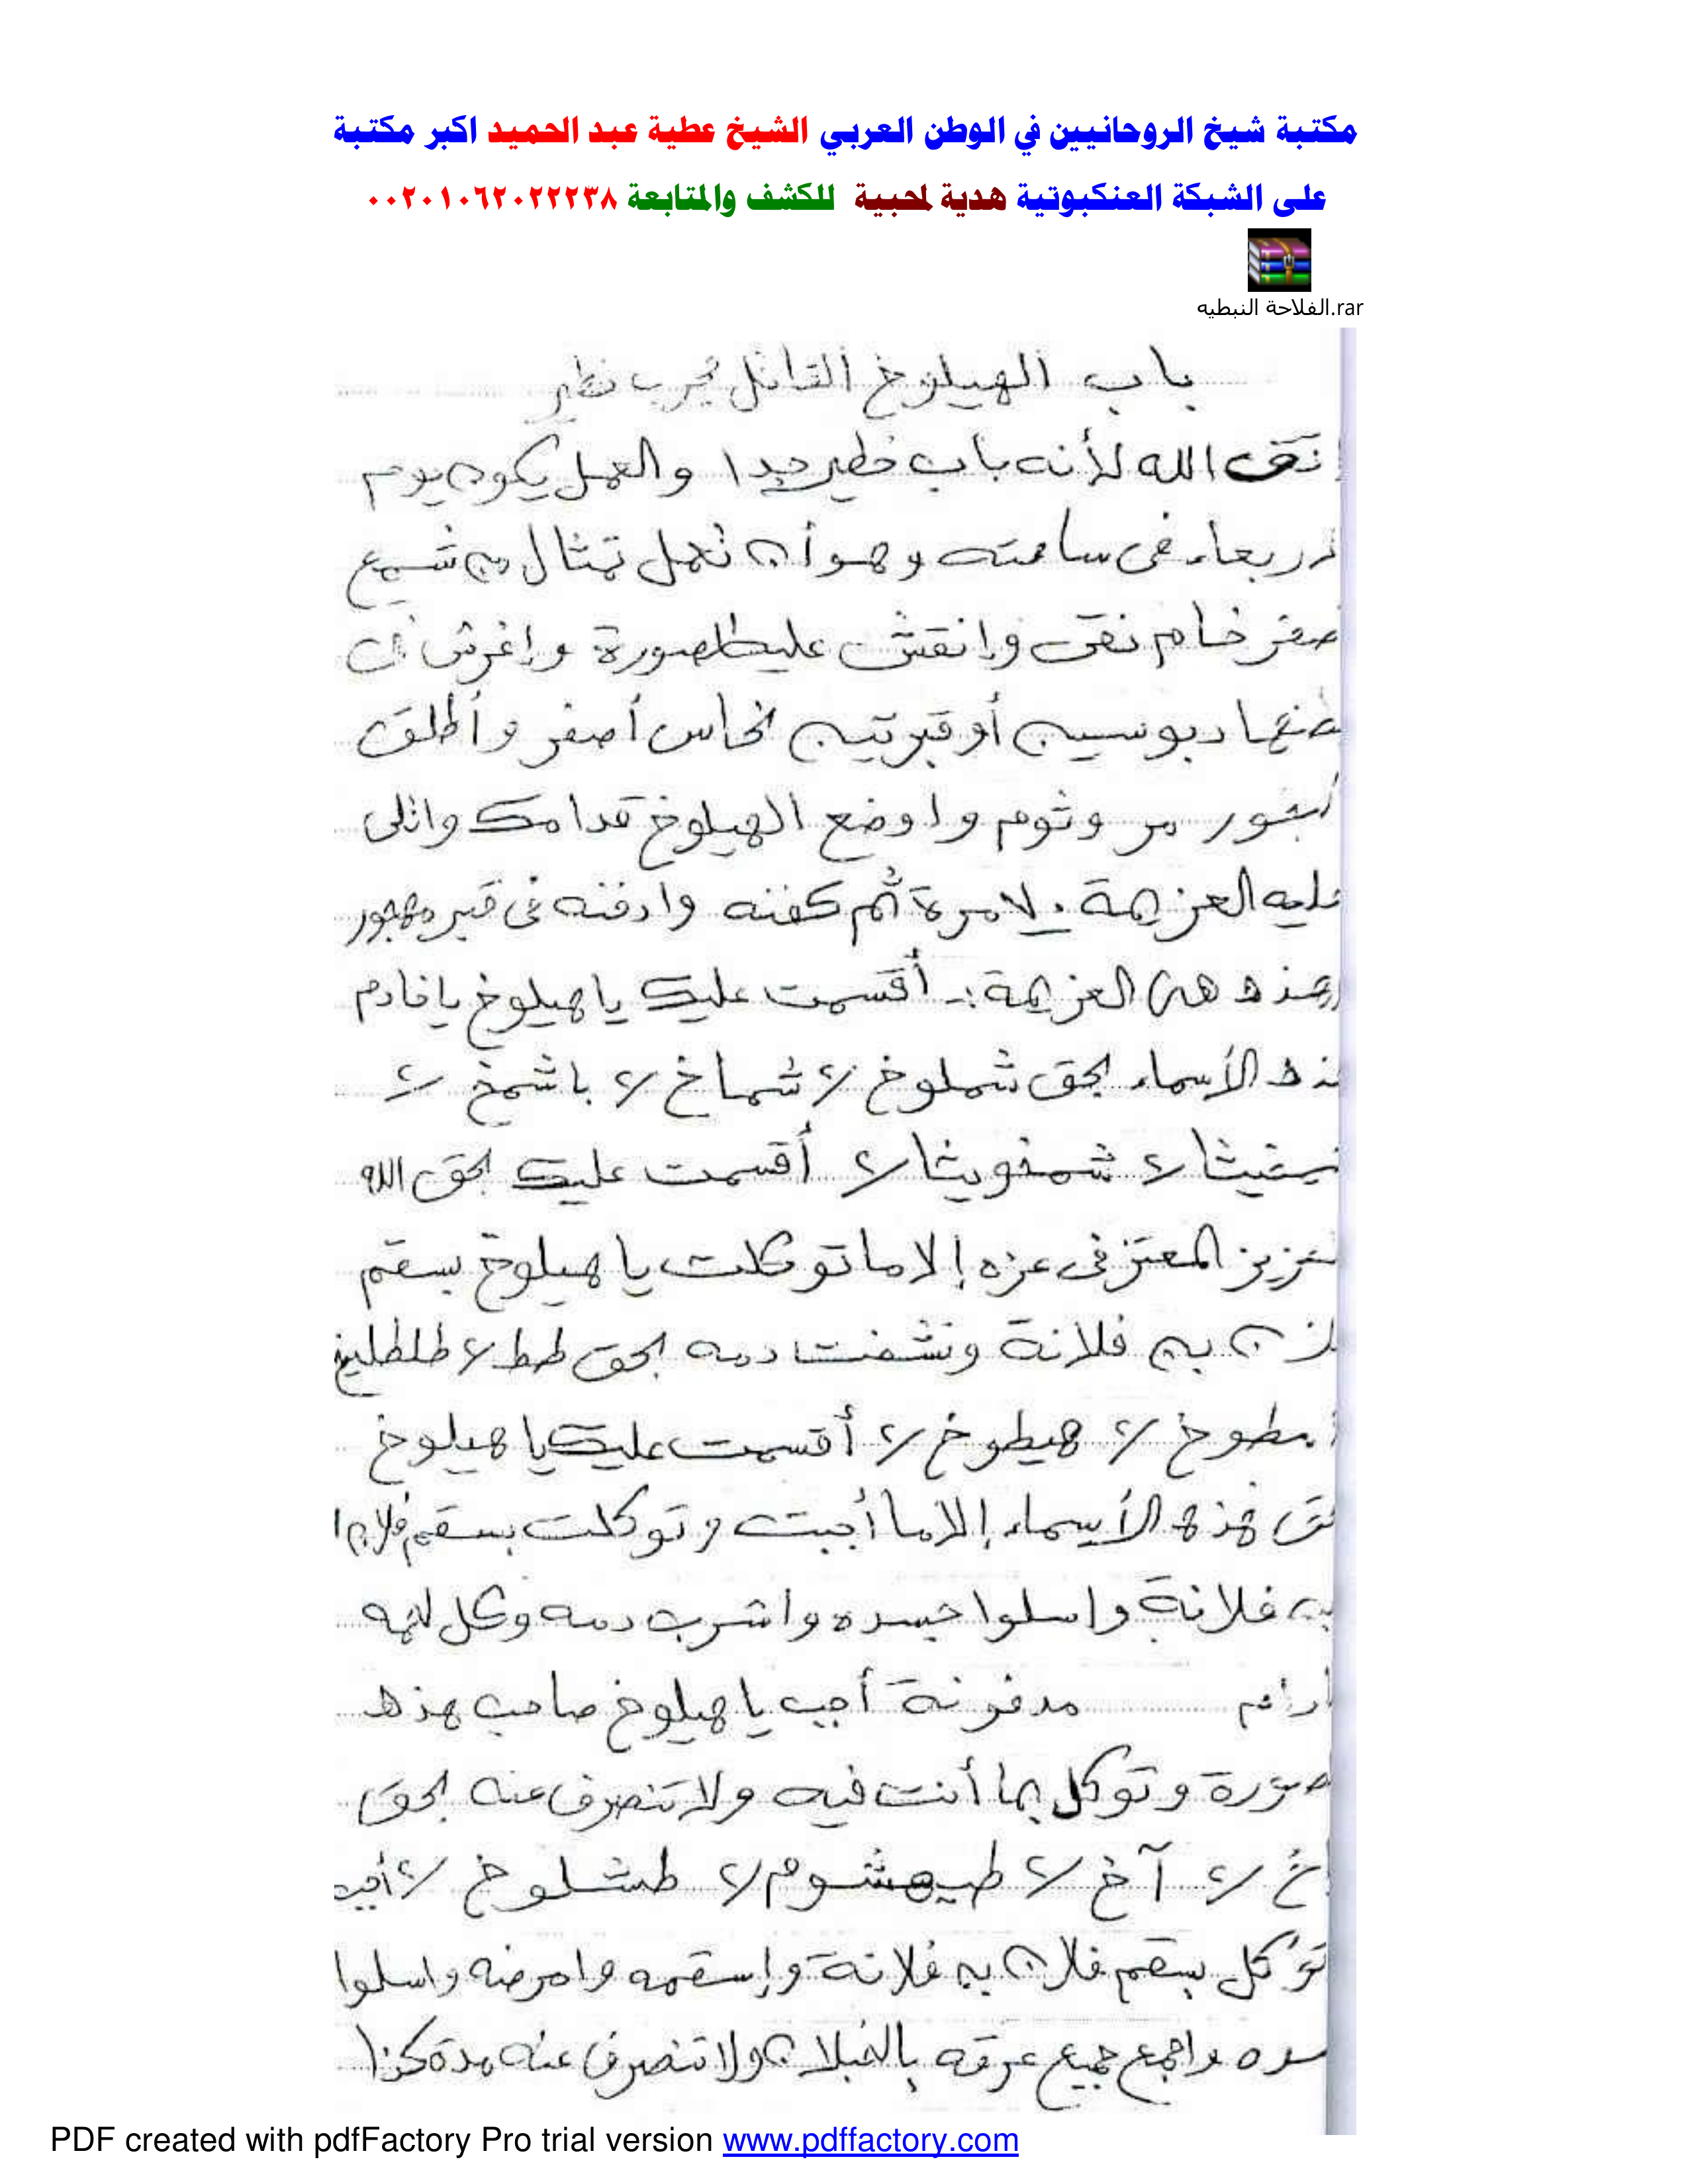 مكتبة شيخ الروحانيين في الوطن العربي الشيخ عطية عبد الحميد اكبر مكتبة
على الشبكة العنكبوتية هدية لمحبيية للكشف والمتابعة ٠٠٢٠١٠٦٢٠٢٢٢٣٨
الفلاحة النبطيه.rar
باب الهيلوخ القاتل مجرب
اتقى الله لأنه باب خطير جدا والعمل يكون يوم
فى ساعته وهو أن تعمل تمثال من شمع
خام نقى وانقش عليه الصورة وإغرش
دبوسين أو نحاس أصفر وأطلق
مر وثوم واوضع الهيلوخ قدامك واتلى
عليه العزيمة مرة ثم كفنه وادفنه فى قبر مهجور
وهذه هى العزيمة :- أقسمت عليك يا هيلوخ يا خادم
الأسماء بحق شملوخ ٢/ شماخ ٢/ باشمخ ٢/
٢/ شمخويثا ٢/ أقسمت عليك بحق الله
المعتز فى عزه إلا ما توكلت يا هيلوخ بسقم
بن فلانة ونشفت دمه بحق طط ٢/
٢/ هيطوخ ٢/ أقسمت عليك يا هيلوخ
هذه الأسماء إلا ما أجبت وتوكلت بسقم فلان
بن فلانة واسلوا جسده واشرب دمه وكل لحمه
مدفونة أجب يا هيلوخ صاحب هذه
صورة وتوكل بما أنت فيه ولا تنصرف عنه بحق
٢/ آخ ٢/ طيهشوم ٢/ طشلوخ ٢/ أجب
توكل بسقم فلان بن فلانة وإسقمه وامرضه واسلوا
واجمع جميع عرقه بالخبلان ولا تنصرف عنه مدة كذا
PDF created with pdfFactory Pro trial version www.pdffactory.com